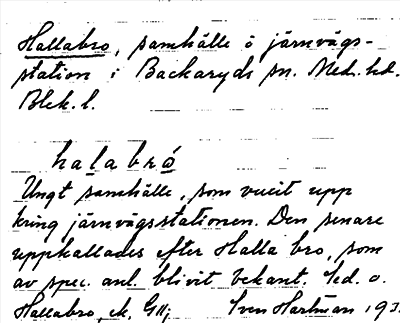 Hallabro, samhälle o järnvägs-
station i Backaryds sn. Med. hd.
Blek. l.
halabró
Ungt samhälle, som vuxit upp
kring järnvägsstationen. Den senare
uppkallades efter Halla bro, som
av spec. anl. blivit bekant. Led. o.
Hallabro, ek. G11; Sven Hartman 193